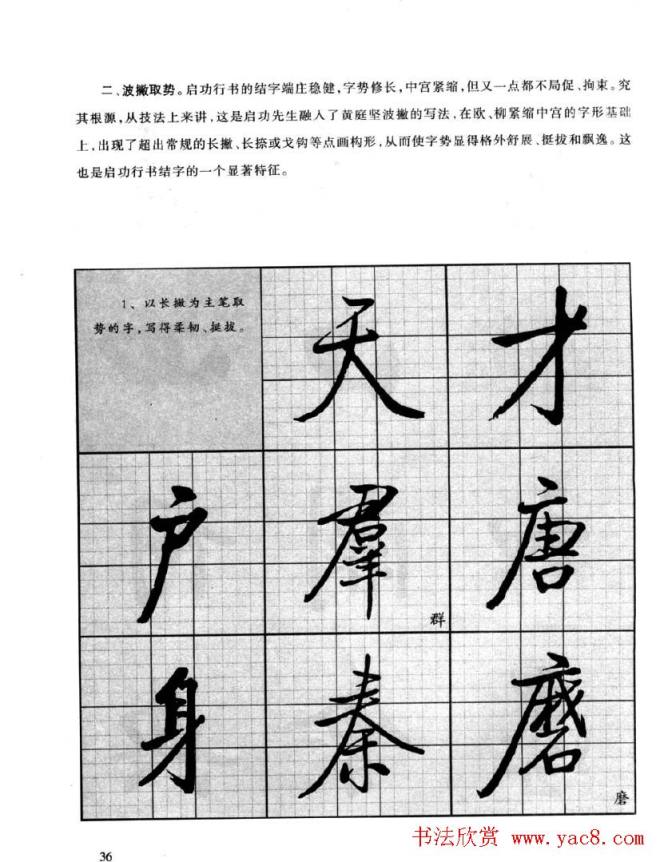 二、波撇取势。启功行书的结字端庄稳健,字势修长,中宫紧缩,但又一点都不局促、拘束。究
其根源,从技法上来讲,这是启功先生融入了黄庭坚波撇的写法,在欧、柳紧缩中宫的字形基础
上,出现了超出常规的长撇、长捺或戈钩等点画构形,从而使字势显得格外舒展、挺拔和飘逸。这
也是启功行书结字的一个显著特征。
1、以长撇为主笔取
势的字,写得柔韧、挺拔。
天 才
户 羣 唐
群
身 秦 磨
磨
36
书法欣赏 www.yac8.com